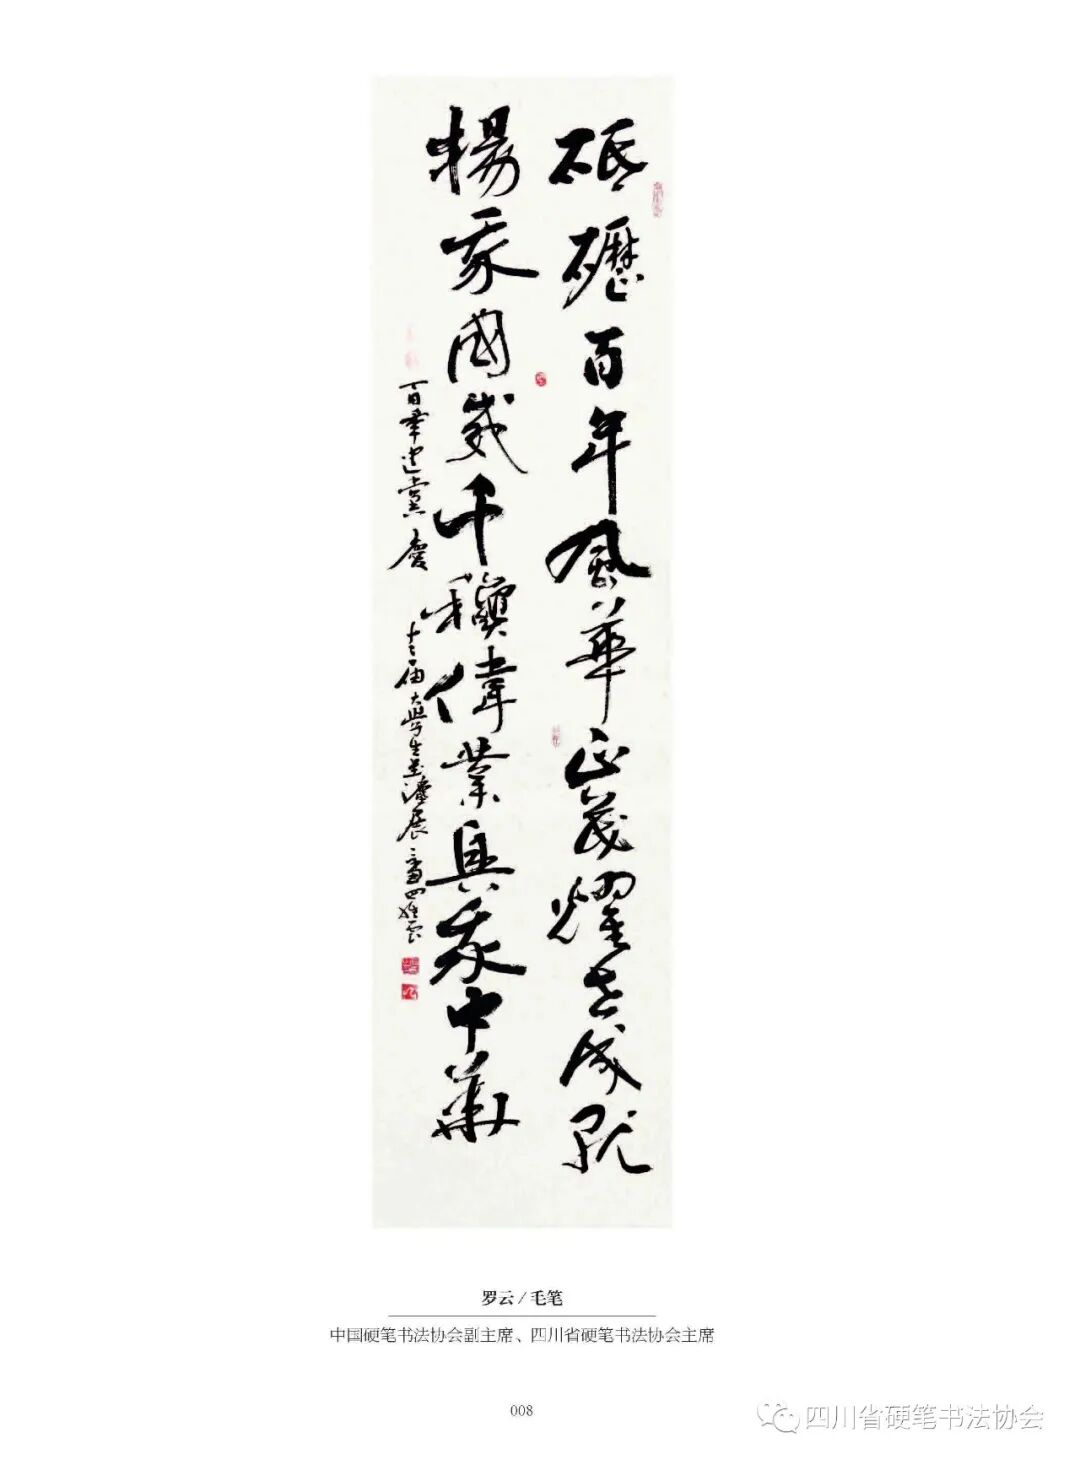 砥礪百年風華正茂耀世成就
揚我國威千龝偉業興我中華
百年建黨慶
大學生書灋展
罗云 / 毛笔
中国硬笔书法协会副主席、四川省硬笔书法协会主席
008
四川省硬笔书法协会